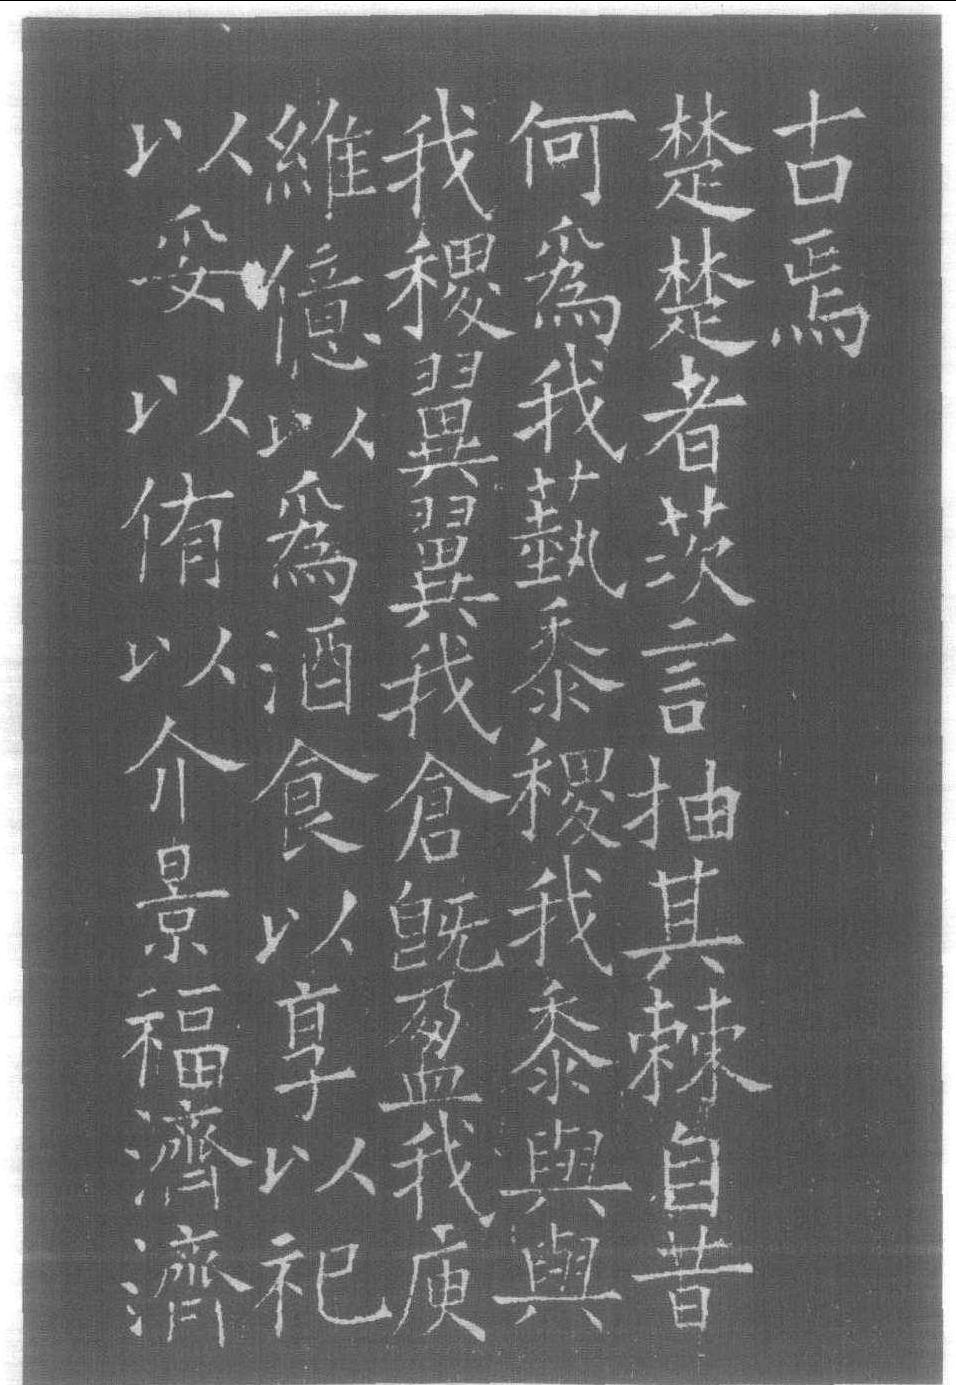 古焉
楚楚者茨言抽其棘自昔
何為我蓺黍稷我黍與與
我稷翼翼我倉既盈我庾
維億以為酒食以享以祀
以妥以侑以介景福濟濟